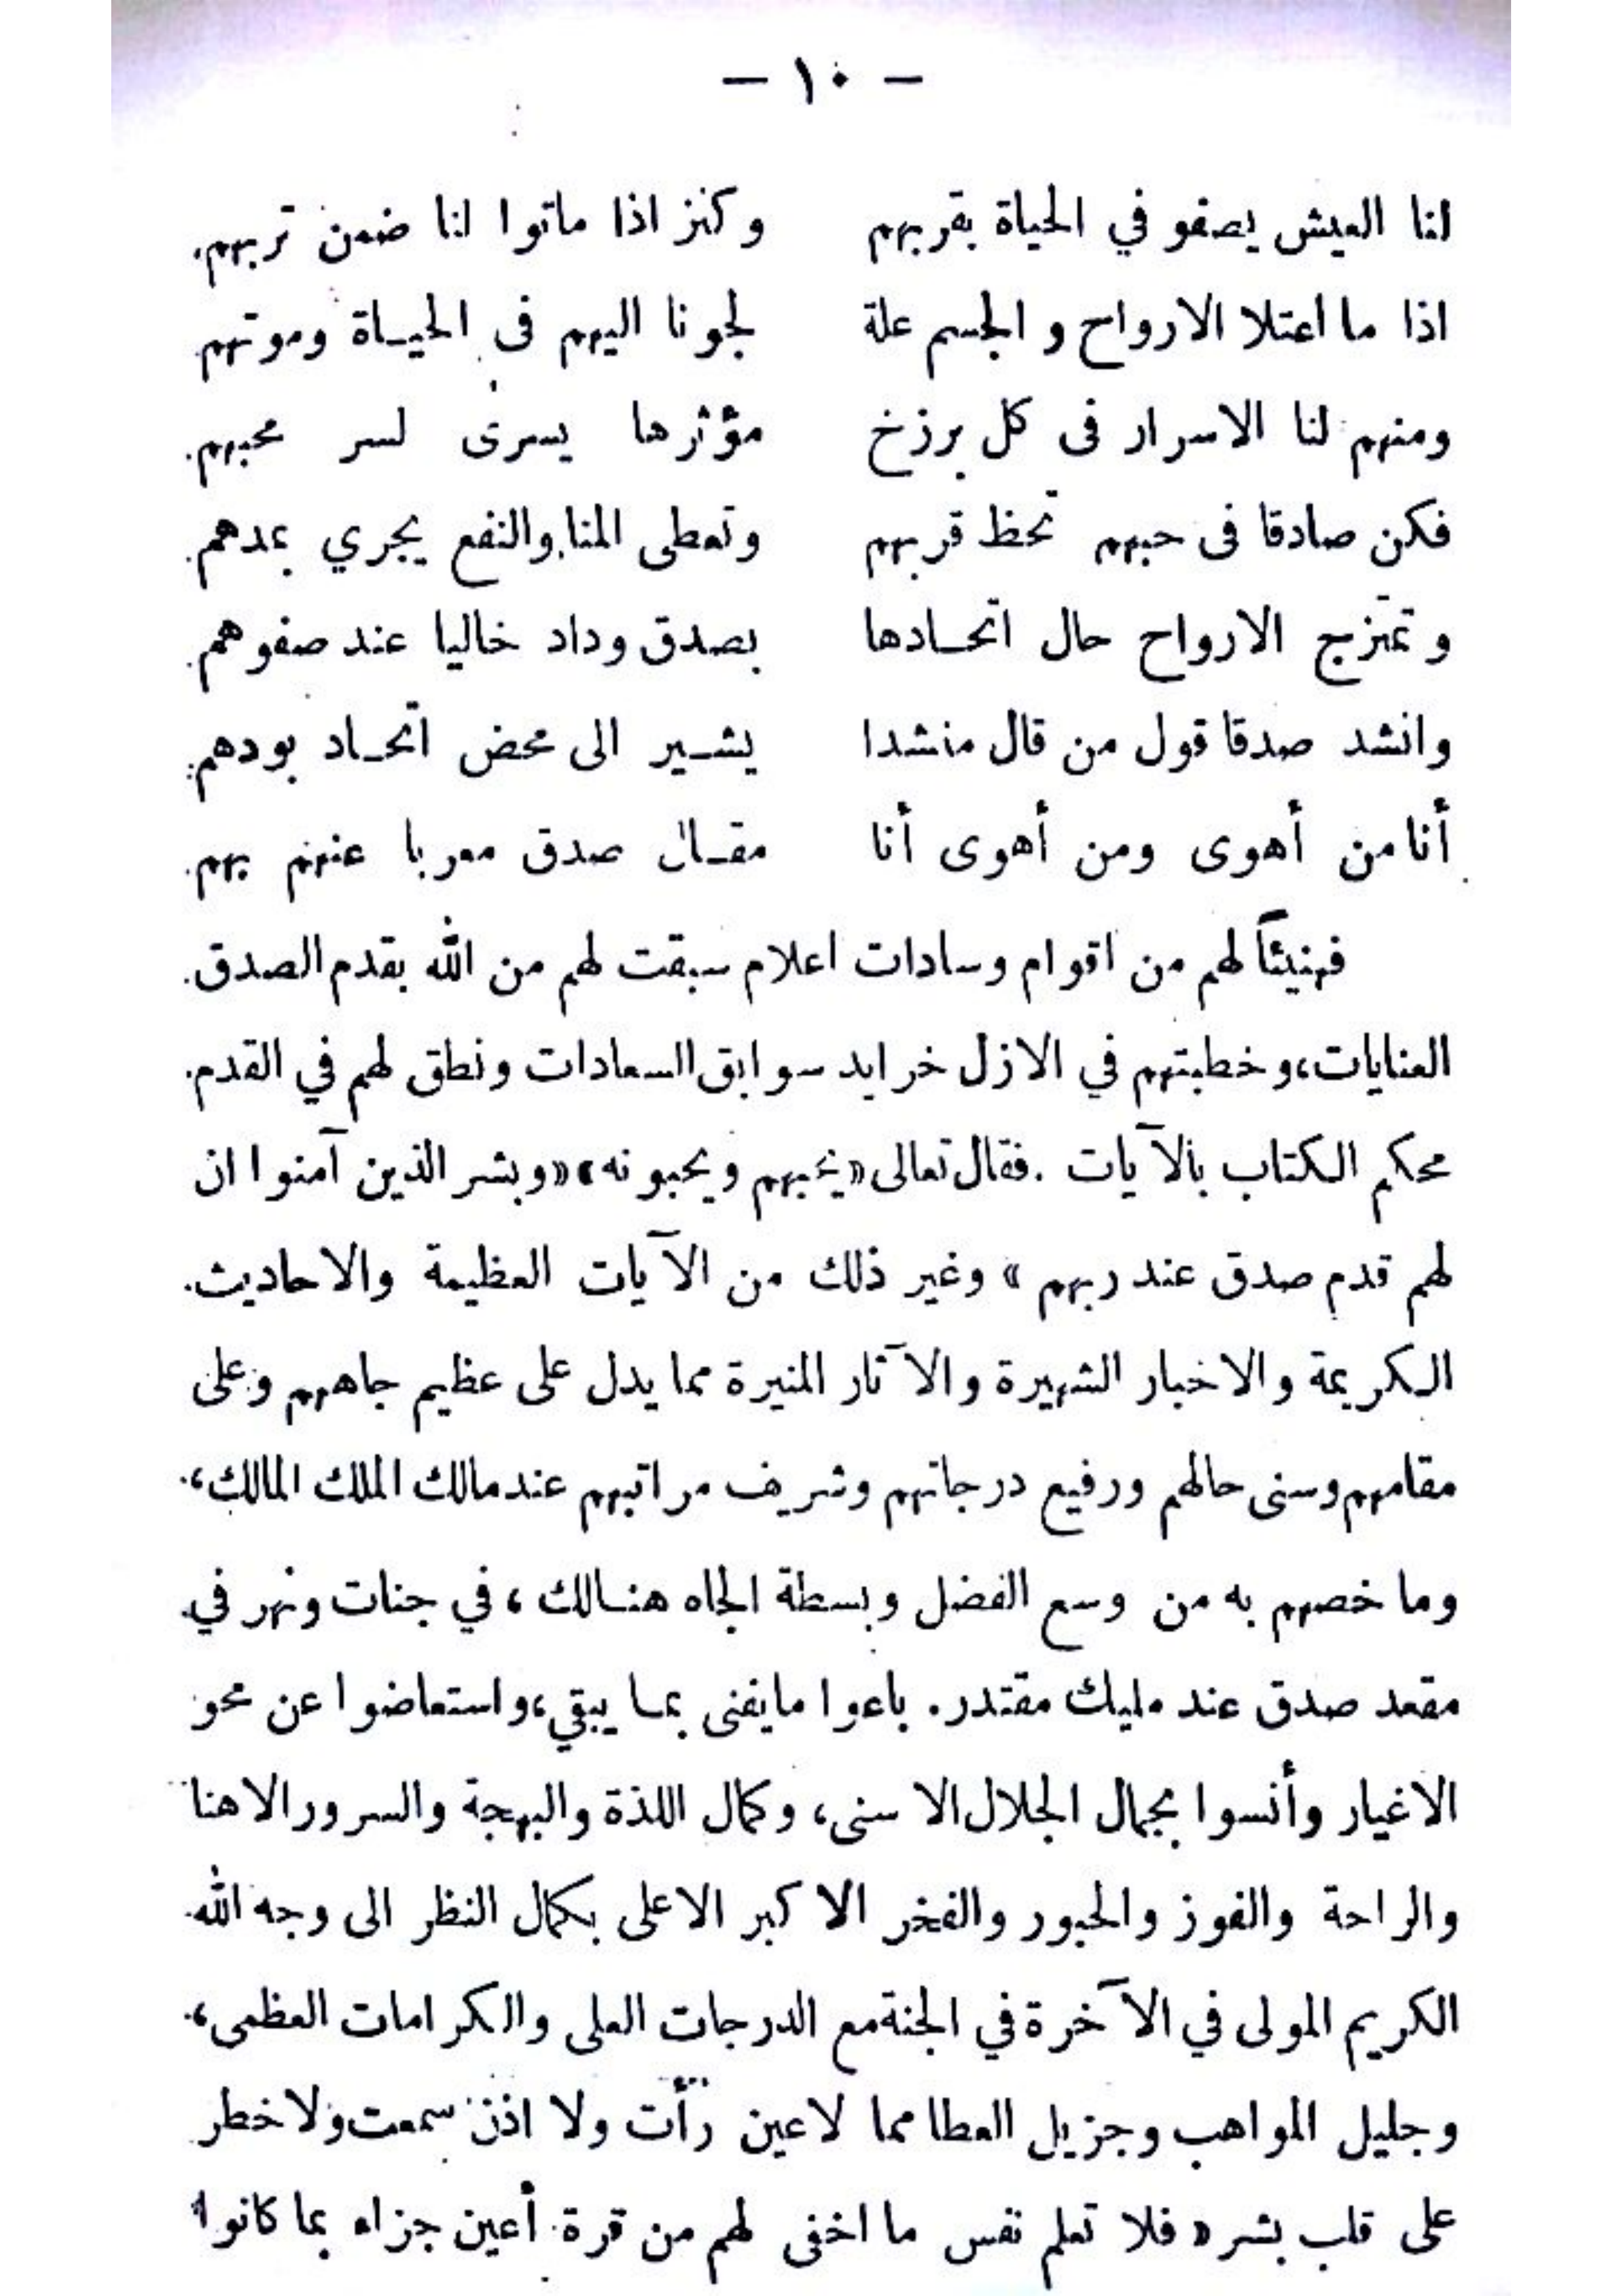 — ١٠ —
لنا العيش يصفو في الحياة بقربهم وكنز اذا ماتوا لنا ضمن تربهم
اذا ما اعتلا الارواح و الجسم علة لجونا اليهم فى الحيـاة وموتهم
ومنهم لنا الاسرار فى كل برزخ مؤثرها يسرى لسر محبهم
فكن صادقا فى حبهم تحظ قربهم وتعطى المنا والنفع يجري بمدهم
وتمتزج الارواح حال اتحـادها بصدق وداد خاليا عند صفوهم
وانشد صدقا قول من قال منشدا يشـير الى محض اتحـاد بودهم
أنا من أهوى ومن أهوى أنا مقـال صدق معربا عنهم بهم
فهنيئاً لهم من اقوام وسادات اعلام سبقت لهم من الله بقدم الصدق
العنايات، وخطبتهم في الازل خرايد سوابق السعادات ونطق لهم في القدم
محكم الكتاب بالآيات . فقال تعالى «يحبهم ويحبونه» «وبشر الذين آمنوا ان
لهم قدم صدق عند ربهم » وغير ذلك من الآيات العظيمة والاحاديث
الكريمة والاخبار الشهيرة والآثار المنيرة مما يدل على عظيم جاههم وعلى
مقامهم وسنى حالهم ورفيع درجاتهم وشريف مراتبهم عند مالك الملك المالك،
وما خصهم به من وسع الفضل وبسطة الجاه هنـالك ، في جنات ونهر في
مقعد صدق عند مليك مقتدر . باعوا ما يفنى بمـا يبقي، واستعاضوا عن محو
الاغيار وأنسوا بجمال الجلال الاسنى، وكمال اللذة والبهجة والسرور الاهنا
والراحة والفوز والحبور والفخر الاكبر الاعلى بكمال النظر الى وجه الله
الكريم المولى في الآخرة في الجنة مع الدرجات العلى والكرامات العظمى،
وجليل المواهب وجزيل العطا مما لا عين رأت ولا اذن سمعت ولا خطر
على قلب بشر « فلا تعلم نفس ما اخفى لهم من قرة أعين جزاء بما كانوا